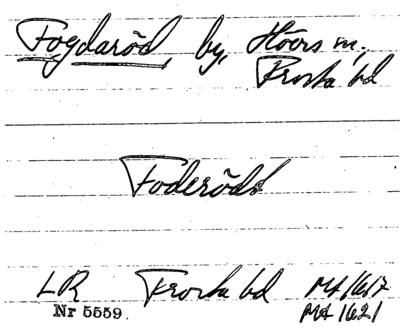 Fogdaröd, by, Höörs sn,
Frosta hd
Foderöds
LR Frosta hd M4 1617
Nr 5559. M4 1621